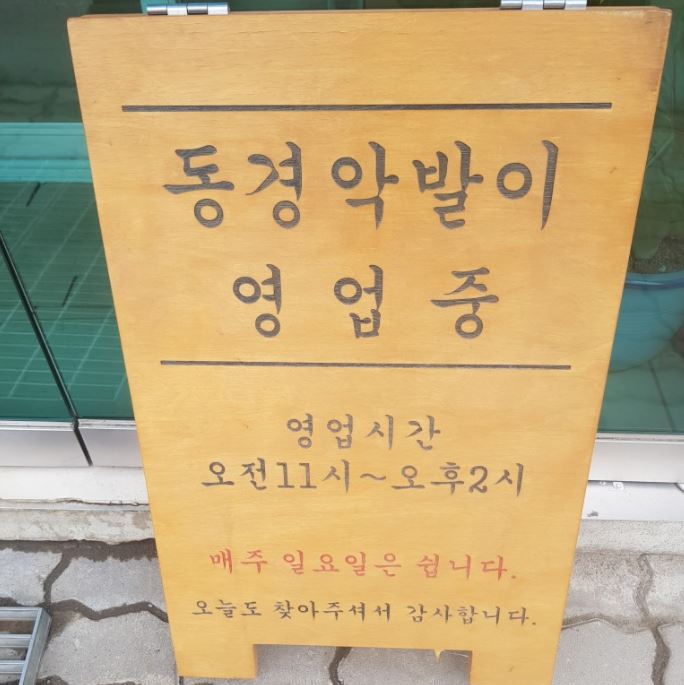 동경악발이
영업중
영업시간
오전11시~오후2시
매주 일요일은 쉽니다.
오늘도 찾아주셔서 감사합니다.